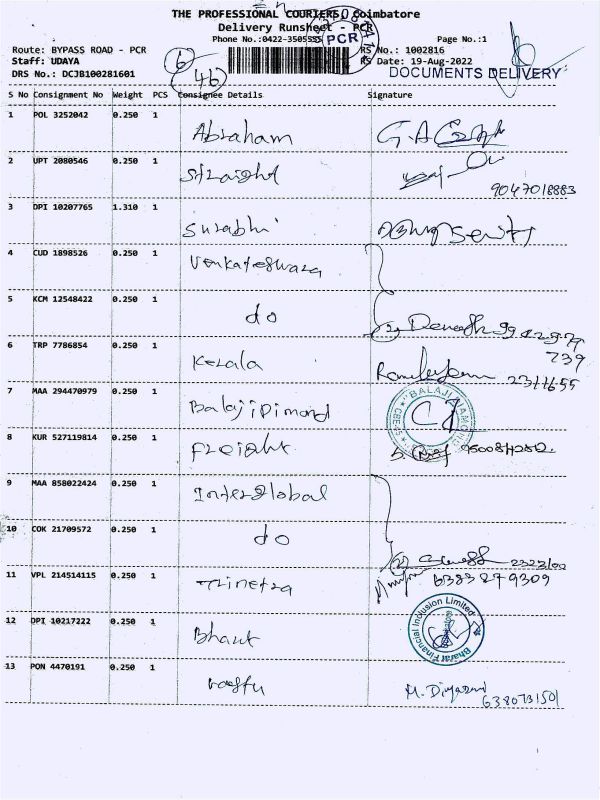 THE PROFESSIONAL COURIERS, Coimbatore
Delivery Runsheet - PCR
Phone No.:0422-3505555 Page No.:1
Route: BYPASS ROAD - PCR RS No.: 1002816
Staff: UDAYA RS Date: 19-Aug-2022
DRS No.: DCJB100281601
PCR
6
46
DOCUMENTS DELIVERY
S No Consignment No Weight PCS Consignee Details Signature
1 POL 3252042 0.250 1 Abraham
2 UPT 2080546 0.250 1 Straight 9047018883
3 DPI 10207765 1.310 1 Surabhi
4 CUD 1898526 0.250 1 Venkateswara
5 KCM 12548422 0.250 1 do
6 TRP 7786854 0.250 1 Kerala
7 MAA 294470979 0.250 1 Balaji Dimond
8 KUR 527119814 0.250 1 Freight
9 MAA 858022424 0.250 1 Interglobal
10 COK 21709572 0.250 1 do
11 VPL 214514115 0.250 1 Trinetra 6383279309
12 DPI 10217222 0.250 1 Bharat
Bharat Financial Inclusion Limited
13 PON 4470191 0.250 1